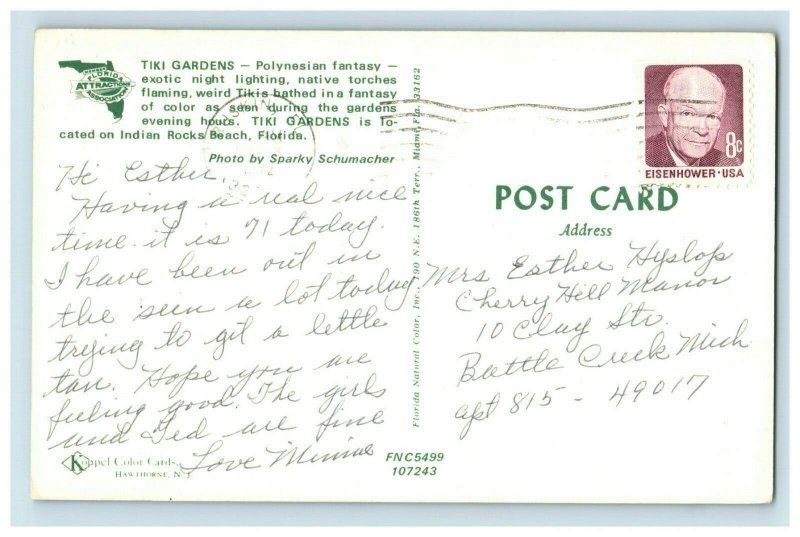 FLORIDA
ATTRACTIONS
ASSOCIATION
TIKI GARDENS — Polynesian fantasy —
exotic night lighting, native torches
flaming, weird Tikis bathed in a fantasy
of color as seen during the gardens
evening hours. TIKI GARDENS is lo-
cated on Indian Rocks Beach, Florida.
Photo by Sparky Schumacher
Hi Esther,
Having a real nice
time. it is 71 today.
I have been out in
the sun a lot today
trying to git a little
tan. Hope you are
feeling good. The girls
and Ted are fine
Love Minnie
Koppel Color Cards
HAWTHORNE, N. J.
FNC5499
107243
Florida Natural Color, Inc., 190 N.E. 186th Terr., Miami, Fla. 33162
8c
EISENHOWER·USA
POST CARD
Address
Mrs Esther Hyslop
Cherry Hill Manor
10 Clay Str.
Battle Creek Mich
apt 815 - 49017